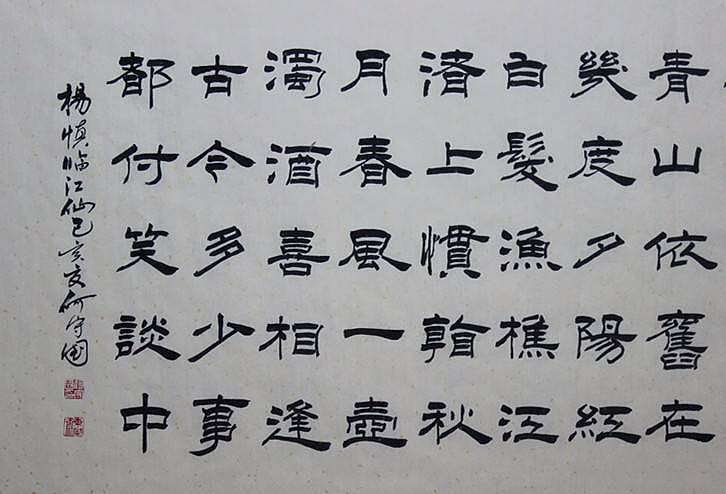 青山依舊在
幾度夕陽紅
白髮漁樵江
渚上慣看秋
月春風一壺
濁酒喜相逢
古今多少事
都付笑談中
楊慎临江仙己亥夏何守國